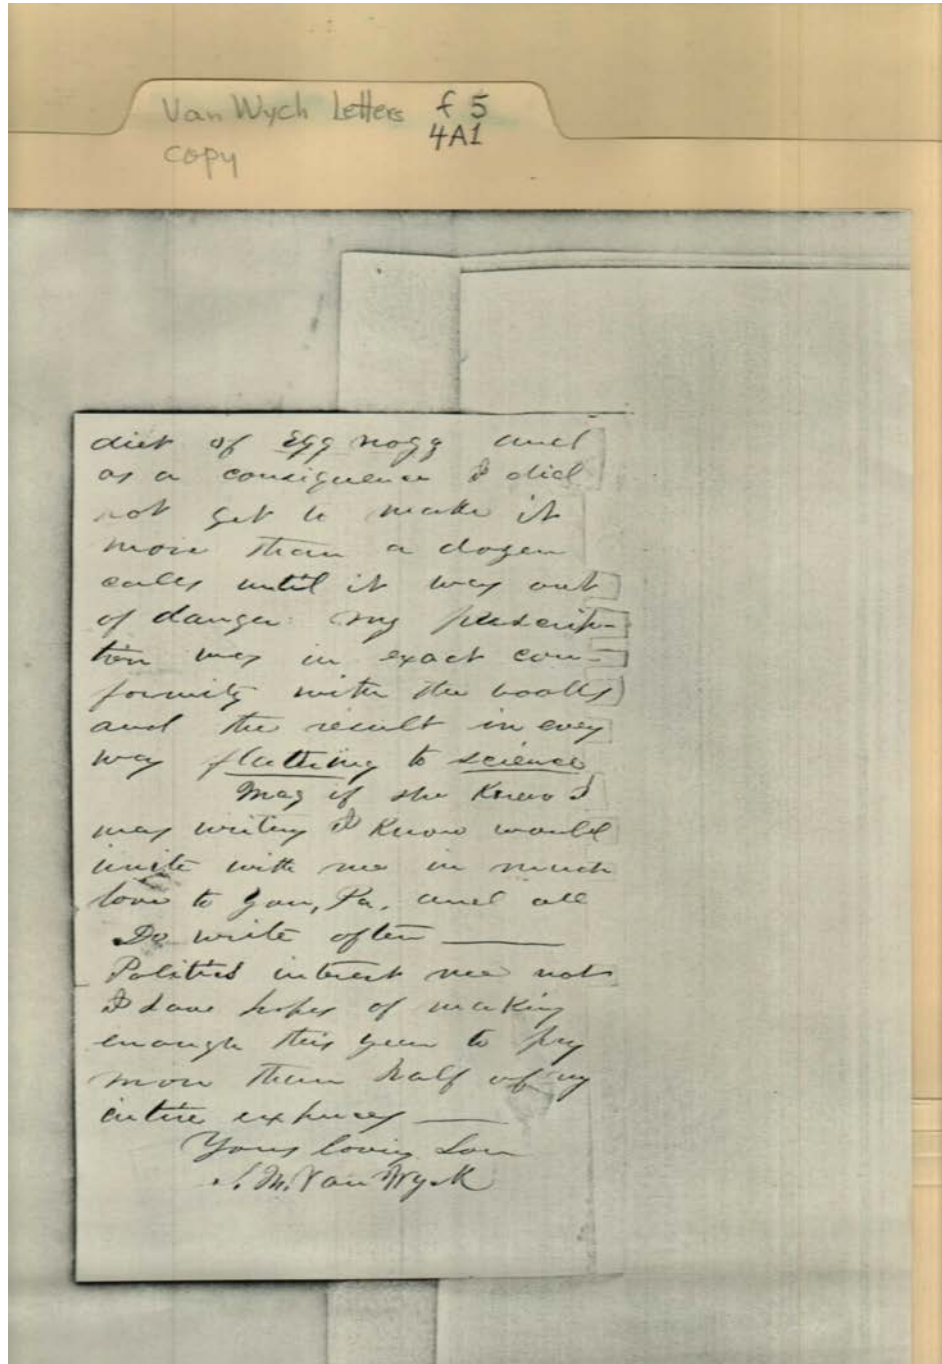 Van Wych Letters f 5
4A1
copy
diet of Egg nogg and
as a consequence I did
not get to make it
more than a dozen
calls until it was out
of danger. My prescrip-
tion was in exact con-
formity with the books
and the result in every
way flattering to science
Mag if she knew I
was writing I know would
unite with me in much
love to you, Pa, and all
Do write often
Politics interest me not
I have hopes of making
enough this year to pay
more than half of my
entire expenses
Your loving Son
S. M. Van Wyck